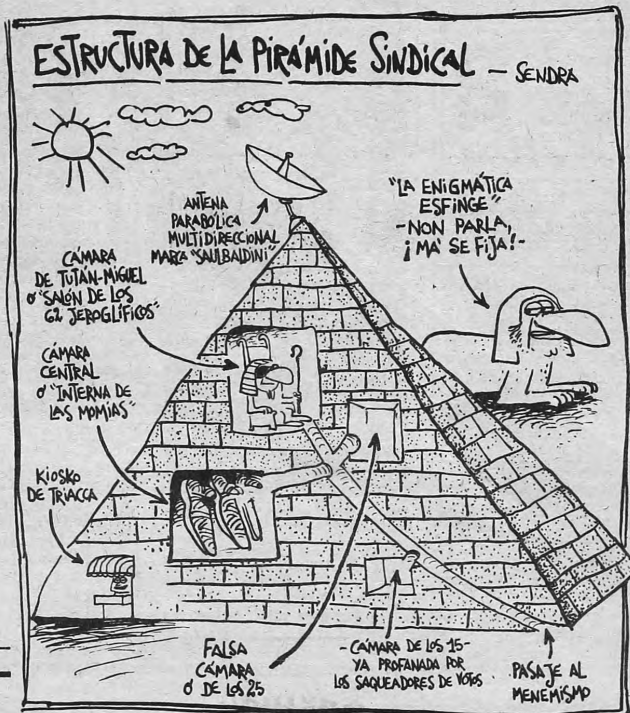 ESTRUCTURA DE LA PIRÁMIDE SINDICAL — SENDRA
ANTENA
PARABÓLICA
MULTIDIRECCIONAL
MARCA "SAULBALDINI"
"LA ENIGMÁTICA
ESFINGE"
-NON PARLA,
¡MA' SE FIJA!-
CÁMARA
DE TUTÁN-MIGUEL
Ó "SALÓN DE LOS
62 JEROGLÍFICOS"
CÁMARA
CENTRAL
Ó "INTERNA DE
LAS MOMIAS"
KIOSKO
DE TRIACCA
FALSA
CÁMARA
Ó DE LOS 25
-CÁMARA DE LOS 15-
YA PROFANADA POR
LOS SAQUEADORES DE VOTOS
PASAJE AL
MENEMISMO